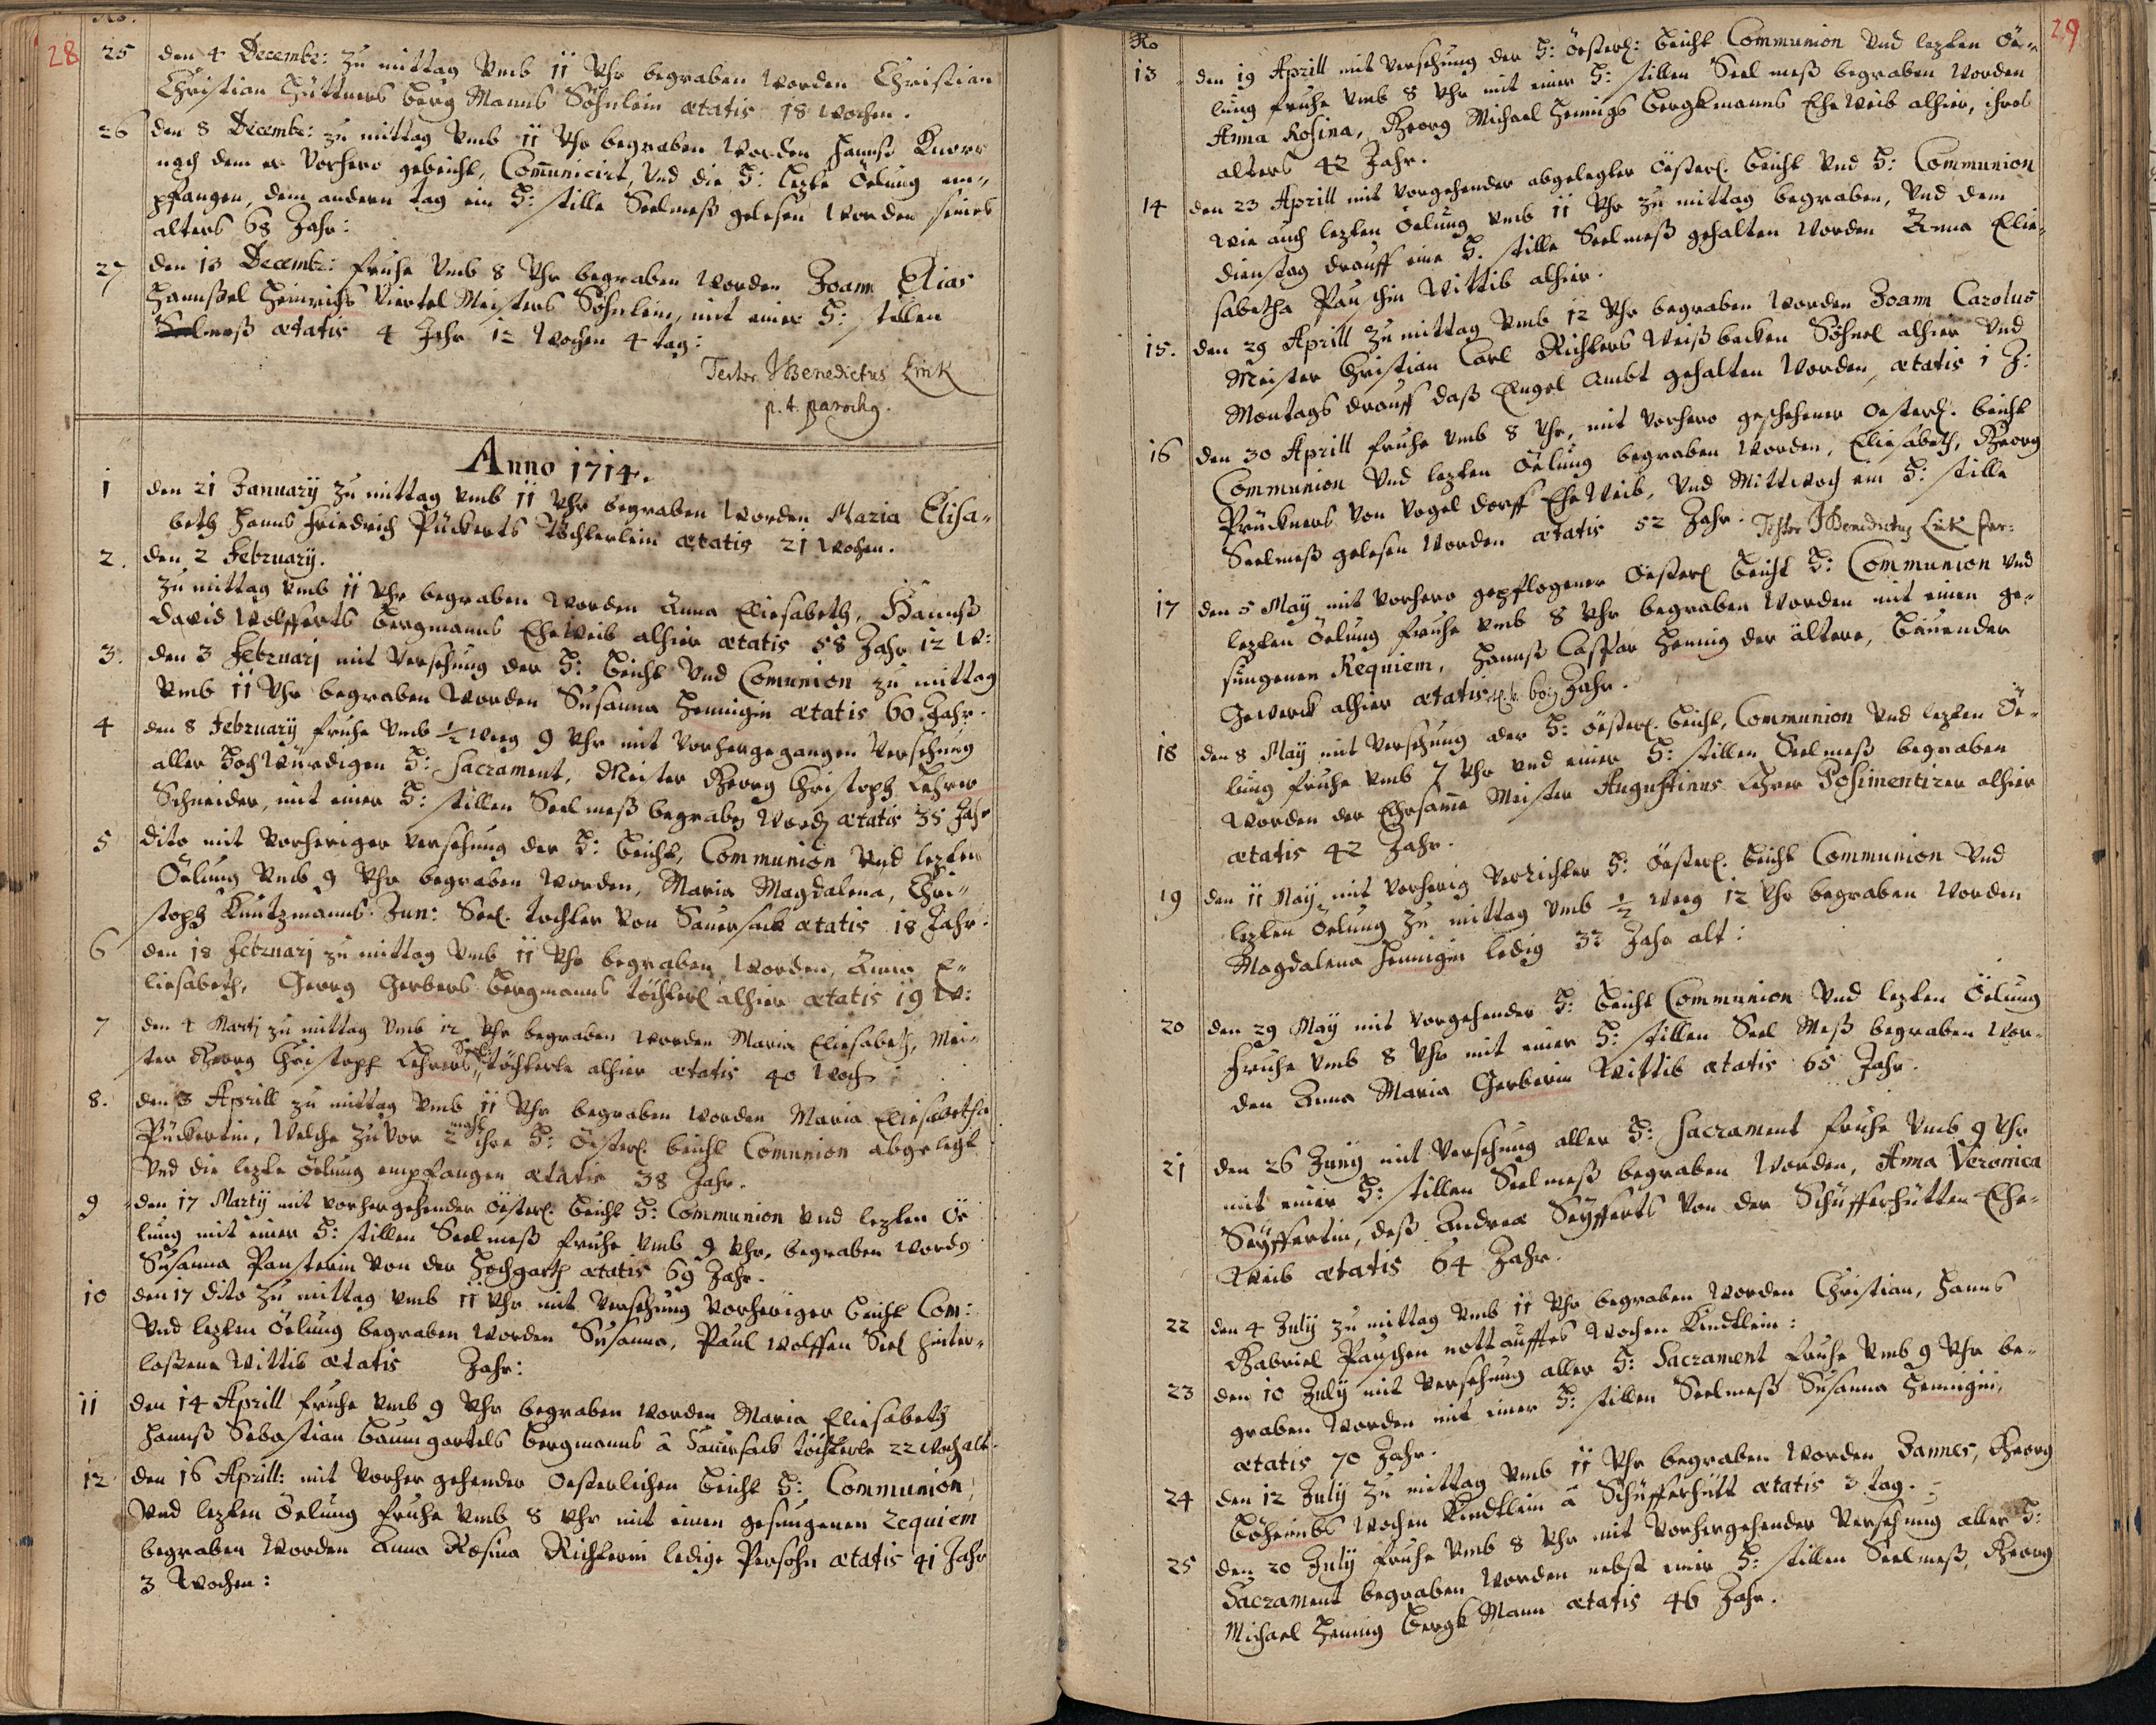 No.
28
25 den 4 Decembr: zu mittag umb 11 Uhr begraben worden Christian
Christian Hüttners berg Manns Söhnlein ætatis 18 wochen.
26 den 8 Decembr: zu mittag umb 11 Uhr begraben worden Hannß Knorr
nach dem er vorhero gebeicht, Com̄unicirt, und die H: lezte Öelung em„
pfangen, dem andern tag ein H: stille Seelmeß gelesen worden seines
alters 68 Jahr:
27 den 13 Decembr: fruhe umb 8 Uhr begraben worden Joann Elias
Hannßel Heinrichs Viertel Meisters Söhnlein, mit einer H: stillen
Seelmeß ætatis 4 Jahr 12 wochen 4 tag:
Testor JBenedictus Link
p. t. parochg.
Anno 1714.
1 den 21 January zu mittag umb 11 Uhr begraben worden Maria Elisa„
beth Hanns Friedrich Pückerts Töchterlein ætatis 21 wochen.
2. den 2 February.
zu mittag umb 11 Uhr begraben worden Anna Eliesabeth, Hannß
David Wolfferts bergmanns Eheweib alhier ætatis 58 Jahr 12 W:
3. den 3 Februarj mit Versehung der H: beicht und Comunion zu mittag
umb 11 Uhr begraben worden Susanna Hennigin ætatis 60 Jahr.
4 den 8 February fruhe umb ½ weg 9 Uhr mit vorhergegangen Versehung
aller Hochwürdigen H: Sacrament, Meister Georg Christoph Lehrer
Schneider, mit einer H: stillen Seelmeß begraben word ætatis 35 Jahr
5 dito mit vorheriger versehung der H: beicht, Communion und lezten
Öelung umb 9 Uhr begraben worden, Maria Magdalena, Chri„
stoph Kuntzmanns Jun: Seel. tochter von Sauersack ætatis 18 Jahr.
6 den 18 Februarj zu mittag umb 11 Uhr begraben worden, Anna E„
liesabeth, Georg Gerbers bergmanns töchterl alhier ætatis 19 W:
7 den 4 Martj zu mittag umb 12 Uhr begraben worden Maria Eliesabeth, Mei„
ster Georg Christoph Lehrers Seel: töchterle alhier ætatis 40 Woch
8. den 3 Aprill zu mittag umb 11 Uhr begraben worden Maria Eliesabetha
Pückertin, welche zuvor 2 mahl ihre H: Österl. beicht Comunion abgelegt
und die lezte Öelung empfangen ætatis 38 Jahr.
9 den 17 Martij mit vorhergehender Österl. beicht H: Communion und lezten Öe
lung mit einer H: stillen Seelmeß fruhe umb 9 Uhr, begraben word
Susanna Pausterin von der Hochgarth ætatis 69 Jahr.
10 den 17 dito zu mittag umb 11 Uhr mit versehung vorheriger beicht Com:
und lezten Öelung begraben worden Susanna, Paul Wolffen Seel hinter„
lassene Wittib ætatis Jahr:
11 den 14 Aprill fruhe umb 9 Uhr begraben worden Maria Eliesabeth
Hannß Sebastian Baumgartels bergmanns â Sauersack töchterle 22 woch alt.
12 den 16 Aprill: mit vorher gehender Oesterlichen beicht H: Communion,
und lezten Öelung fruhe umb 8 Uhr mit einen gesungenen Requiem
begraben worden Anna Rosina Richterin ledige Persohn ætatis 41 Jahr
3 Wochen:
No
29
13 den 19 Aprill mit Versehung der H: österl: beicht Communion und lezten Öe„
lung fruhe umb 8 Uhr mit einer H: stillen Seel meß begraben worden
Anna Rosina, Georg Michael Hennigs bergkmanns Eheweib alhier, ihres
alters 42 Jahr.
14 den 23 Aprill mit vorgehender abgelegter österl. beicht und H: Communion
wie auch lezten Öelung umb 11 Uhr zu mittag begraben, und dem
dienstag drauff eine H. stille Seelmeß gehalten worden Anna Elie„
sabetha Pauschin Wittib alhier.
15. den 29 Aprill zu mittag umb 12 Uhr begraben worden Joann Carolus
Meister Christian Carl Richters Weißbecken Söhnel alhier und
Montags drauff daß Engel ambt gehalten worden, ætatis 1 J:
16 den 30 Aprill fruhe umb 8 Uhr, mit vorhero geschehener oesterl. beicht
Communion und lezten Öelung begraben worden, Eliesabeth, Georg
Prückners von Vogeldorff Eheweib, und Mittwoch ein H: stille
Seelmeß gelesen worden ætatis 52 Jahr. Testor JBenedictus Link par:
17 den 5 May mit vorhero gepflogener Oesterl beicht H: Communion und
lezten Öelung fruhe umb 8 Uhr begraben worden mit einen ge„
sungenen Requiem, Hannß Casspar Hennig der ältere, bauender
Gewerck alhier ætatis Jahr.
18 den 8 May mit versehung der H: österl. beicht, Communion und lezten Öe„
lung fruhe umb 7 Uhr und einer H: stillen Seelmeß begraben
worden der Ehrsam̄e Meister Augustinus Lehrer Posimentirer alhier
ætatis 42 Jahr.
19 den 11 May mit vorherig verrichter H: Österl. beicht Communion und
lezten Öelung zu mittag umb ½ weg 12 Uhr begraben worden
Magdalena Hennigin ledig 32 Jahr alt:
20 den 29 May mit vorgehender H: beicht Communion und lezten Öelung
fruhe umb 8 Uhr mit einer H: stillen Seel Meß begraben wor„
den Anna Maria Gerberin Wittib ætatis 65 Jahr.
21 den 26 Juny mit versehung aller H: Sacrament fruhe umb 9 Uhr
mit einer H: stillen Seelmeß begraben worden, Anna Veronica
Seyffertin, deß Andreæ Seyfferts von der Schüfferhütten Ehe„
weib ætatis 64 Jahr.
22 den 4 July zu mittag umb 11 Uhr begraben worden Christian, Hanns
Gabriel Pauschen nottaufftes wochen Kindlein:
23 den 10 July mit versehung aller H: Sacrament fruhe umb 9 Uhr be„
graben worden mit einer H: stillen Seelmeß Susanna Hennigin,
ætatis 70 Jahr.
24 den 12 July zu mittag umb 11 Uhr begraben worden Jannes, Georg
Böheimbs wochen Kindtlein â Schüfferhütt ætatis 3 tag.
25 den 20 July fruhe umb 8 Uhr mit vorhergehender Versehung aller H:
Sacrament begraben worden nebst einer H: stillen Seelmeß, Georg
Michael Hennig bergk Mann ætatis 46 Jahr.